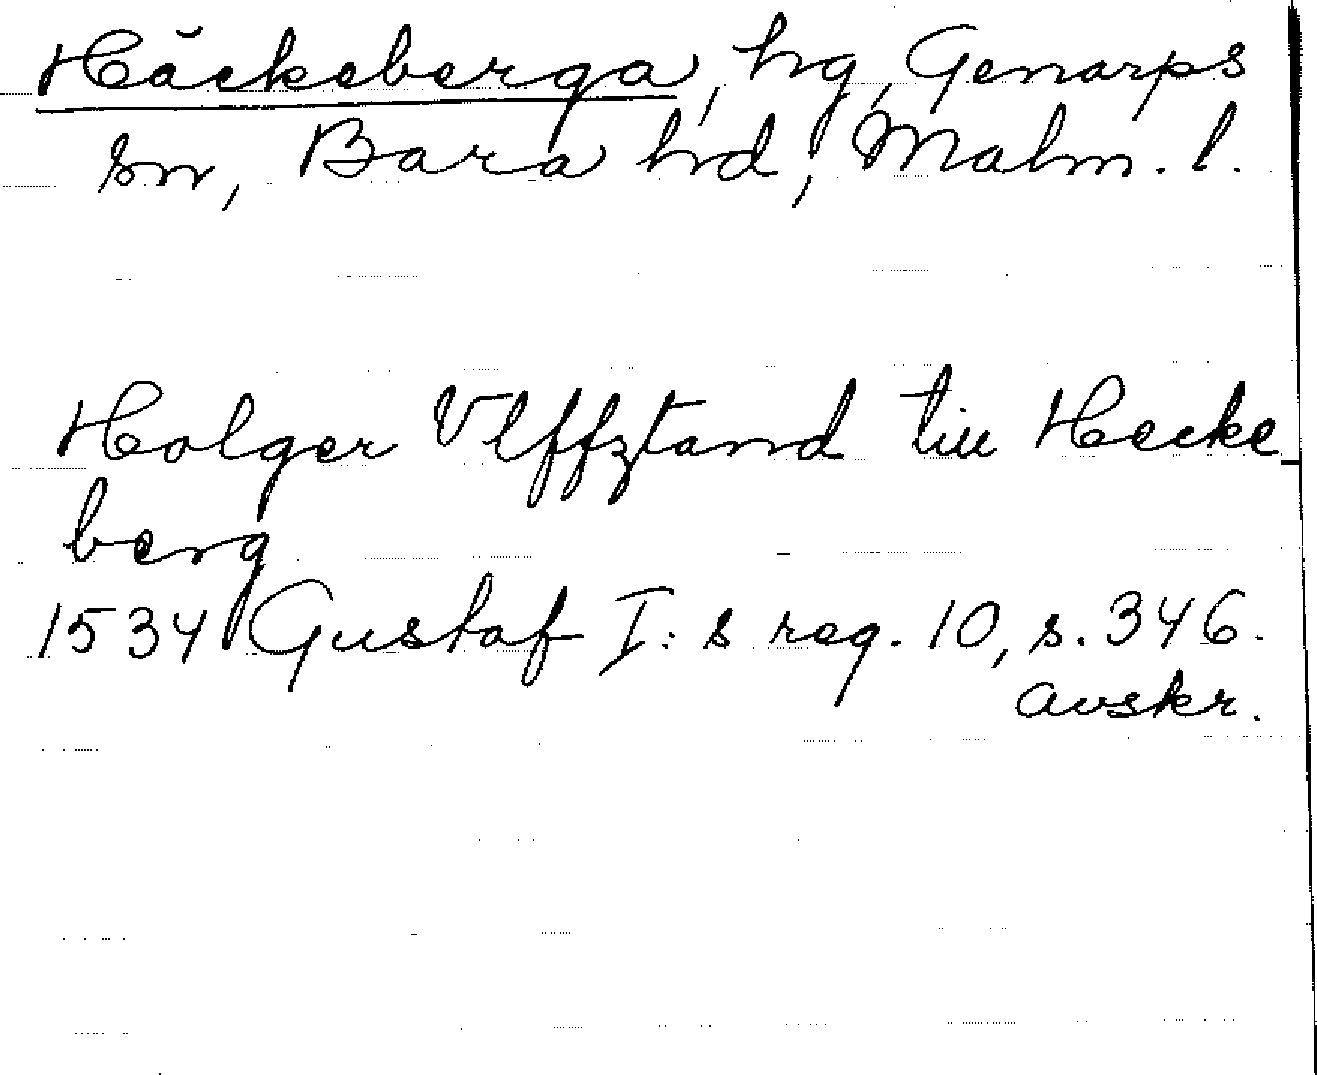 Häckeberga, hg, Genarps
sn, Bara hd, Malm. l.
Holger Vlffztand till Hecke
berg
1534 Gustaf I:s reg. 10, s. 346.
avskr.